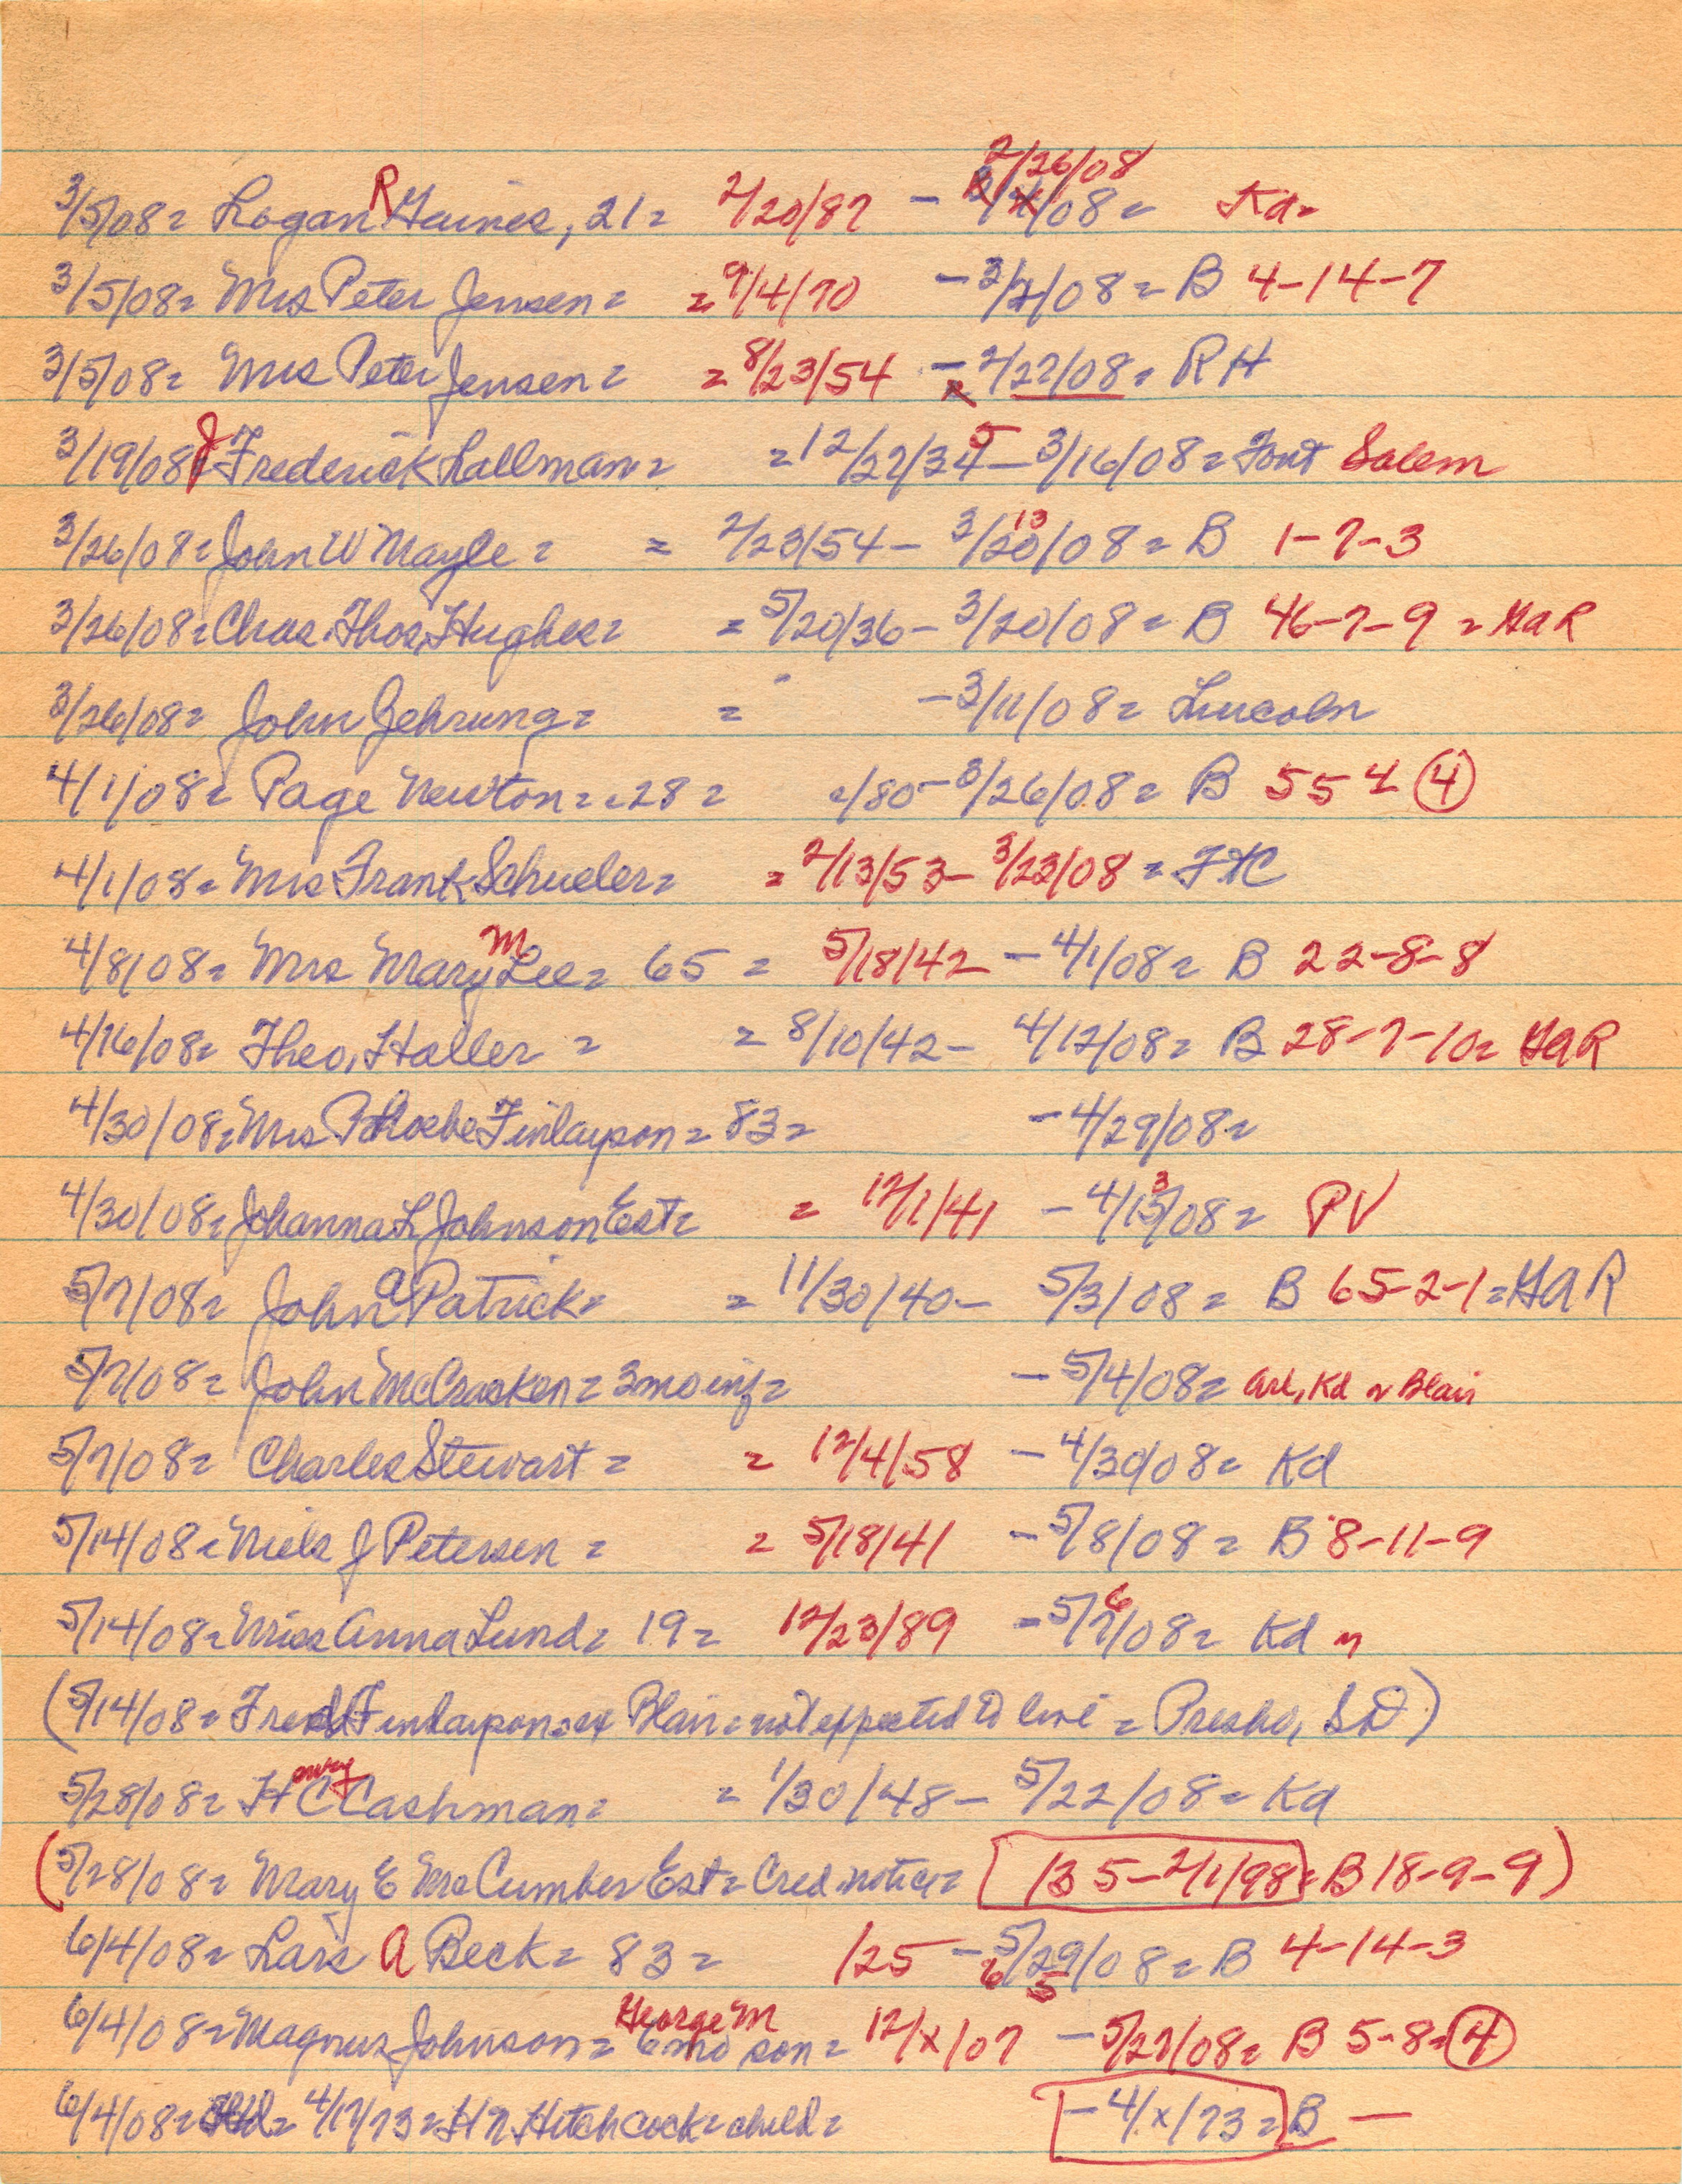 2/26/08
3/5/08= Logan R Gaines, 21= 2/20/87 - /08= Kd=
3/5/08= Mrs Peter Jensen= =9/4/70 -3/2/08= B 4-14-7
3/5/08= Mrs Peter Jensen= =8/23/54 -2/22/08= RH
3/19/08 J Frederick Lallman= =12/27/34 5 -3/16/08= Font Salem
3/26/08= John W Mayle= = 2/23/54- 3/20/08= 13 B 1-7-3
3/26/08= Chas. Thos. Hughes= = 5/20/36- 3/20/08= B 46-7-9 = GAR
3/26/08= John Gehrung= = -3/11/08= Lincoln
4/1/08= Page Newton= 28= =/80-3/26/08= B 55 4 4
4/1/08= Mrs Frank Schueler= =2/13/53- 3/23/08= FtC
4/8/08= Mrs Mary M Lee= 65= 5/18/42 -4/1/08= B 22-8-8
4/16/08= Theo. Haller= = 8/10/42- 4/12/08= B 28-7-10= GAR
4/30/08= Mrs Phoebe Finlayson= 83= -4/29/08=
4/30/08= Johanna L Johnson Est= = 12/1/41 -4/15/08= 3 PV
5/7/08= John A Patrick= = 11/30/40- 5/3/08= B 65-2-1= GAR
5/7/08= John McCracken= 3 mo inf= -5/4/08= Arl, Kd or Blair
5/7/08= Charles Stewart= = 12/4/58 -4/30/08= Kd
5/14/08= Niels J Petersen= = 5/18/41 -5/8/08= B 8-11-9
5/14/08= Miss Anna Lund= 19= 12/23/89 -5/7/08= 6 Kd
(5/14/08= Fred Finlayson= ex Blair= not expected to live= Presho, SD)
5/28/08= H enry C Cashman= = 1/30/48- 5/22/08= Kd
(5/28/08= Mary E McCumber Est= Cred. notice= /35-2/1/98= B 18-9-9)
6/4/08= Lars A Beck= 83= /25 -5/29/08= 6 5 B 4-14-3
6/4/08= Magnus Johnson= George M 6 mo son= 12/x/07 -5/27/08= B 5-8- 4
6/4/08= 4/17/73= H N Hitchcock= child= -4/x/73= B —